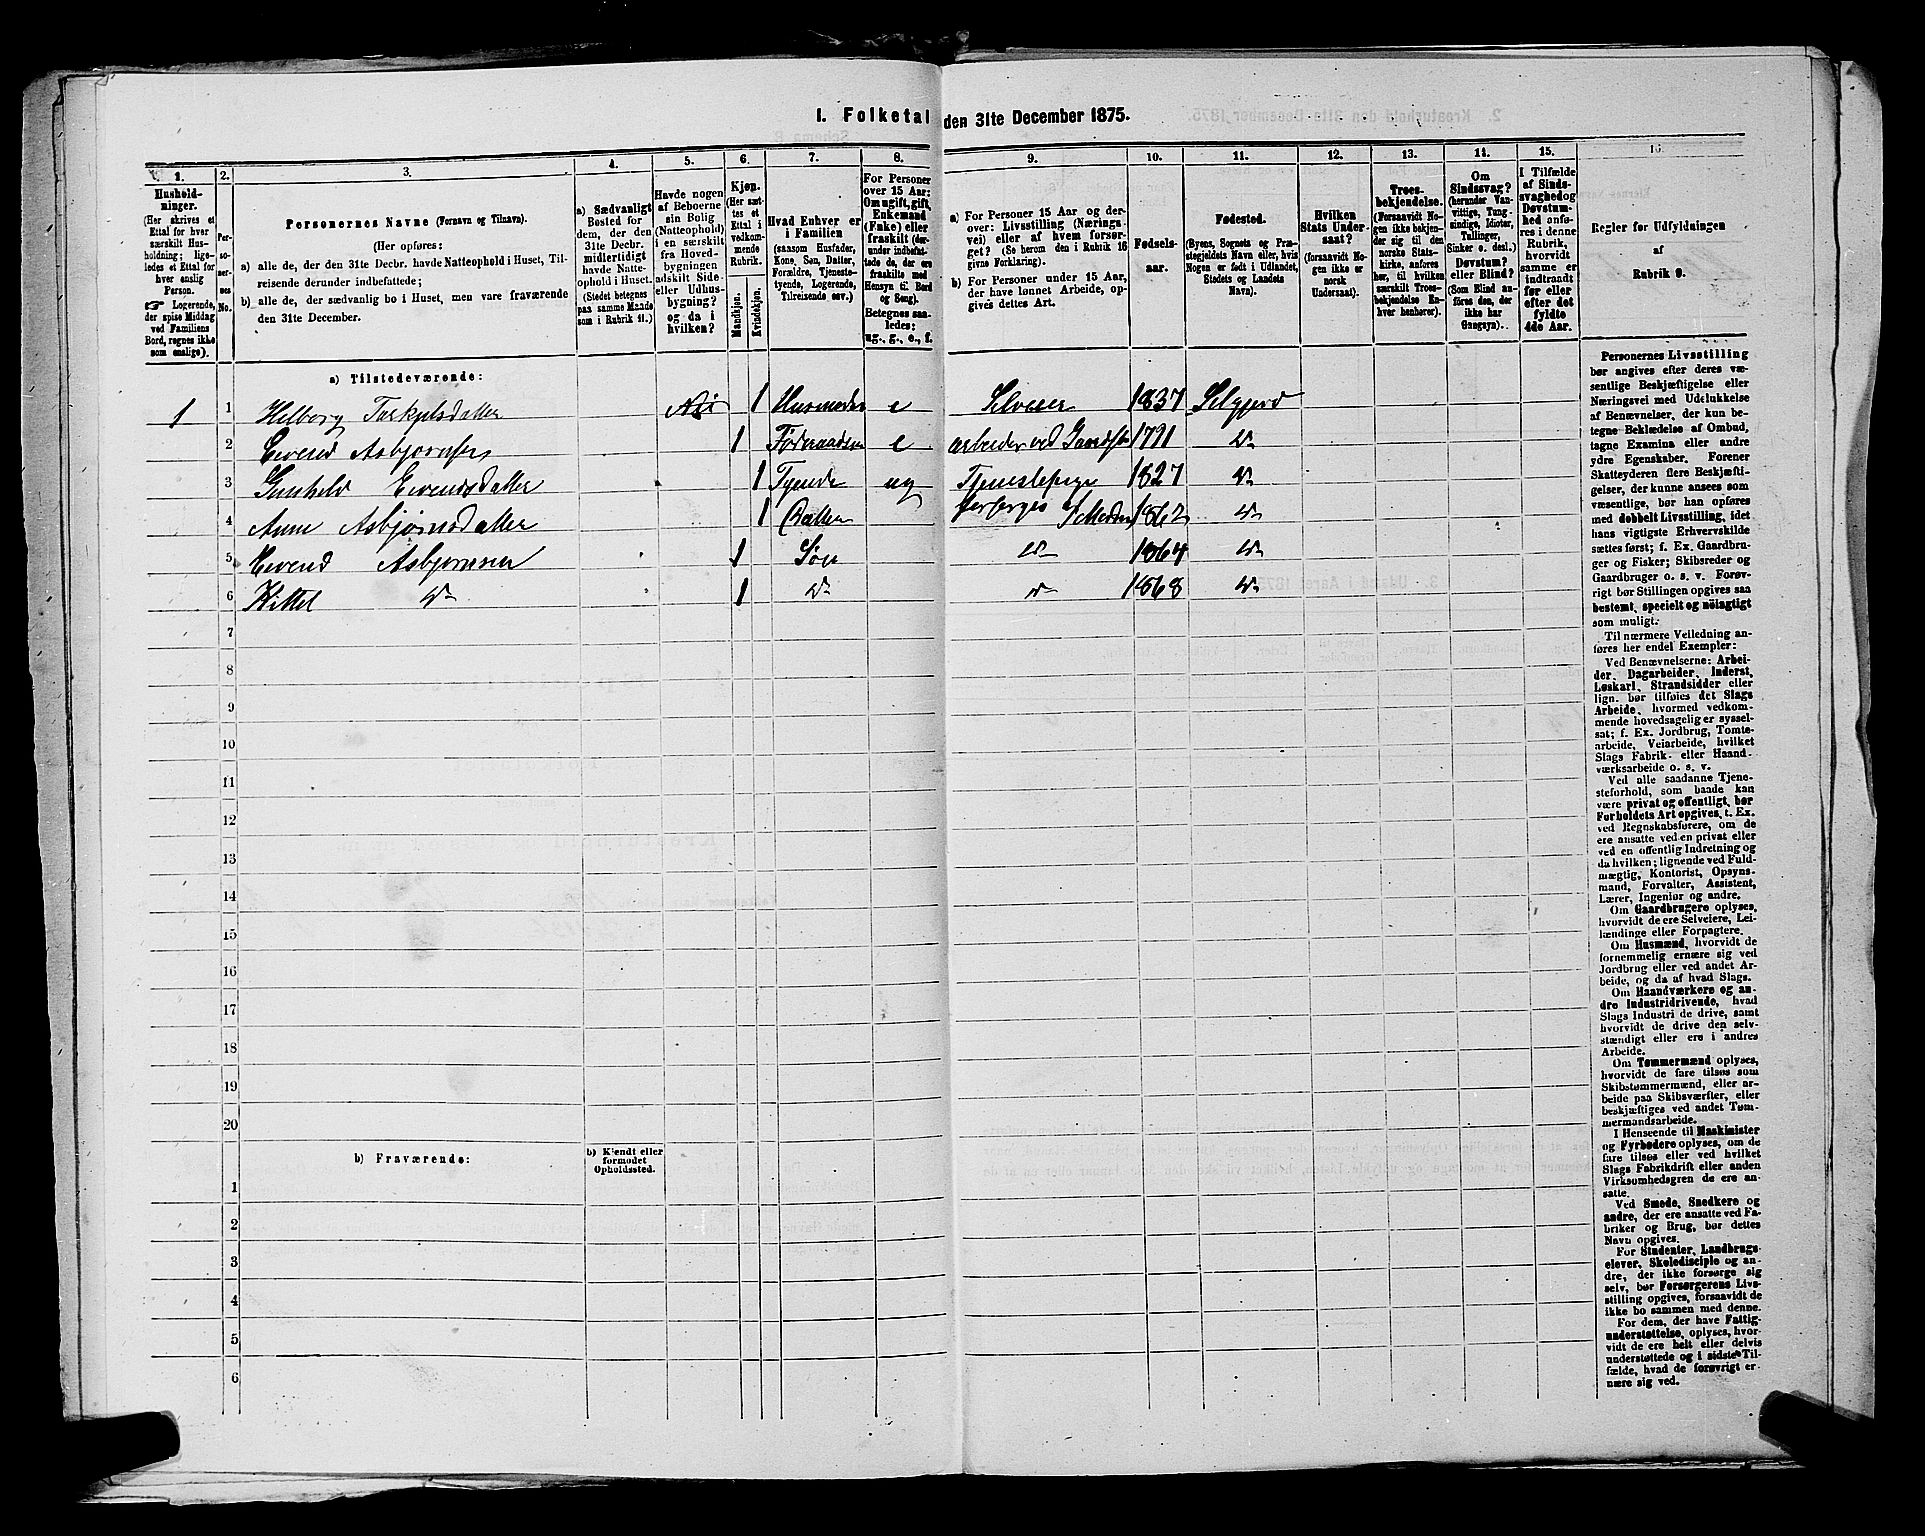 1. Folketal den 31te December 1875.
1.
Husholdninger.
(Her skrives et
Ettal for hver
særskilt Hus-
holdning; lige-
ledes et Ettal for
hver enslig
Person.
☞ Logerende,
der spise Middag
ved Familiens
Bord, regnes ikke
som enslige).
2.
Per-
so-
ner-
nes
No.
3.
Personernes Navne (Fornavn og Tilnavn).
(Her opføres:
a) alle de, der den 31te Decbr. havde Natteophold i Huset, Til-
reisende derunder indbefattede;
b) alle de, der sædvanlig bo i Huset, men vare fraværende
den 31te December.
4.
a) Sædvanligt
Bosted for
dem, der den
31te Decbr.
midlertidigt
havde Natte-
ophold i Huset.
(Stedet betegnes
paa samme Maade
som i Rubrik 11.)
5.
Havde nogen
af Beboerne
sin Bolig
(Natteophold)
i en særskilt
fra Hoved-
bygningen
adskilt Side-
eller Udhus-
bygning?
og da i
hvilken?
6.
Kjøn.
(Her sæt-
tes et
Ettal i
vedkom-
mende
Rubrik.
Mandkjøn.
Kvindekjøn.
7.
Hvad Enhver er
i Familien
(saasom Husfader,
Kone, Søn, Datter,
Forældre, Tjeneste-
tyende, Logerende,
Tilreisende osv.)
8.
For Personer
over 15 Aar:
Om ugift, gift,
Enkemand
(Enke) eller
fraskilt (der-
under indbefat-
tede de, der ere
fraskilte med
Hensyn til Bord
og Seng).
Betegnes saa-
ledes:
ug., g., e., f.
9.
a) For Personer 15 Aar og der-
over: Livsstilling (Nærings-
vei) eller af hvem forsør-
get? (Se herom den i Rubrik 16
givne Forklaring).
b) For Personer under 15 Aar,
der have lønnet Arbeide, op-
gives dettes Art.
10.
Fødsels-
aar.
11.
Fødested.
(Byens, Sognets og Præ-
stegjeldets Navn eller, hvis
Nogen er født i Udlandet,
Stedets og Landets
Navn).
12.
Hvilken
Stats Under-
saat?
(forsaavidt No-
gen ikke er
norsk
Undersaat).
13.
Troes-
bekjendelse.
(Forsaavidt No-
gen ikke bekjen-
der sig til den
norske Stats-
kirke, anføres
her, til hvilken
særskilt Troes-
bekjendelse En-
hver henhører).
14.
Om
Sindssvag?
(herunder Van-
vittige, Tung-
sindige, Idioter,
Tullinger,
Sinker o. desl.)
Døvstum?
eller Blind?
(Som Blind an-
føres den, der
ikke har
Gangsyn).
15.
I Tilfælde
af Sinds-
svaghed og
Døvstum-
hed onfø-
res i denne
Rubrik,
hvorvidt
samme er
indtraadt
før eller
efter det
fyldte
4de Aar.
16.
Regler for Udfyldningen
af
Rubrik 9.
a) Tilstedeværende:
1 1 Helborg Torkilsdatter Nei 1 Husmoder e Selveier 1837 Selgjord
2 Eivend Asbjørnsen 1 Føderaadsm e arbeider ved 1791 do
3 Gunhild Eivendsdatter 1 Tjende ug Tjenestepige 1827 do
4 Anne Asbjørnsdatter 1 Datter forsørges af Moder 1862 do
5 Eivend Asbjørnsen 1 Søn do 1864 do
6 Kittel do 1 do do 1868 do
7
8
9
10
11
12
13
14
15
16
17
18
19
20
b) Fraværende:
b) Kjendt eller
formodet
Opholdssted.
1
2
3
4
5
6
Personernes Livsstilling
bør angives efter deres væ-
sentlige Beskjæftigelse eller
Næringsvei med Udelukkelse
af Benævnelser, der kun be-
tegne Beklædelse af Ombud,
tagne Examina eller andre
ydre Egenskaber. Forener
Skatteyderen flere Beskjæfti-
gelser, der kunne ansees som
væsentlige, bør han opføres
med dobbelt Livsstilling, idet
hans vigtigste Erhvervskilde
sættes først; f. Ex. Gaardbru-
ger og Fisker; Skibsreder og
Gaardbruger o. s. v. Forøv-
rigt bør Stillingen opgives saa
bestemt, specielt og nöiagtigt
som muligt.
Til nærmere Veiledning an-
føres her endel Exempler:
Ved Benævnelserne: Arbei-
der, Dagarbeider, Inderst,
Løskarl, Strandsidder eller
lign. bør tilføies det Slags
Arbeide, hvormed vedkom-
mende hovedsagelig er syssel-
sat; f. Ex. Jordbrug, Tomte-
arbeide, Veiarbeide, hvilket
Slags Fabrik- eller Haand-
værksarbeide o. s. v.
Ved alle saadanne Tjene-
steforhold, som baade kan
være privat og offentligt, bør
Forholdets Art opgives, t. Ex.
ved Regnskabsførere, om de
ere ansatte ved en privat eller
ved en offentlig Indretning og
da hvilken; lignende ved Fuld-
mægtig, Kontorist, Opsyns-
mand, Forvalter, Assistent,
Lærer, Ingeniør og andre.
Om Gaardbrugere oplyses,
hvorvidt de ere Selveiere, Lei-
lændinge eller Forpagtere.
Om Husmænd, hvorvidt de
fornemmelig ernære sig ved
Jordbrug eller ved andet Ar-
beide, og da af hvad Slags.
Om Haandværkere og an-
dre Industridrivende, hvad
Slags Industri de drive, samt
hvorvidt de drive den selv-
stændigt eller ere i andres
Arbeide.
Om Tømmermænd oplyses,
hvorvidt de fare tilsøs som
Skibstømmermænd, eller ar-
beide paa Skibsværfter, eller
beskjæftiges ved andet Tøm-
mermandsarbeide.
I Henseende til Maskinister
og Fyrbødere oplyses, om de
fare tilsøs eller ved hvilket
Slags Fabrikdrift eller anden
Virksomhedsgren de ere an-
satte.
Ved Smede, Snedkere og
andre, der ere ansatte ved Fa-
briker og Brug, bør dettes
Navn opgives.
For Studenter, Landbrugs-
elever, Skoledisciple og an-
dre, der ikke forsørge sig
selv, bør Forsørgerens Livs-
stilling opgives, forsaavidt de
ikke bo sammen med denne.
For dem, der have Fattig-
understøttelse, oplyses, hvor-
vidt de ere helt eller delvis
understøttede og i sidste Til-
fælde, hvad de forøvrigt er-
nære sig ved.